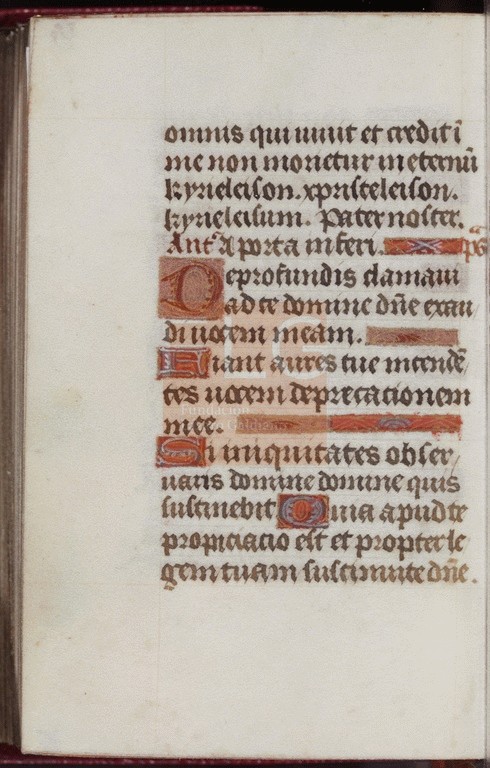 omnis qui uiuit et credit ī
me non morietur in eternū
kyrieleison. xpristeleison.
kyrieleisum. Pater noster.
Ant᷑ A porta inferi. ps᷑
De profundis clamaui
ad te domine dn̄e exau
di uocem meam.
Fiant aures tue intendē
tes uocem deprecationem
mee.
Si iniquitates obser
uaris domine domine quis
sustinebit Quia apud te
propiciacio est et propter le
gem tuam sustinuite dn̄e.
Fundación
Lázaro Galdiano